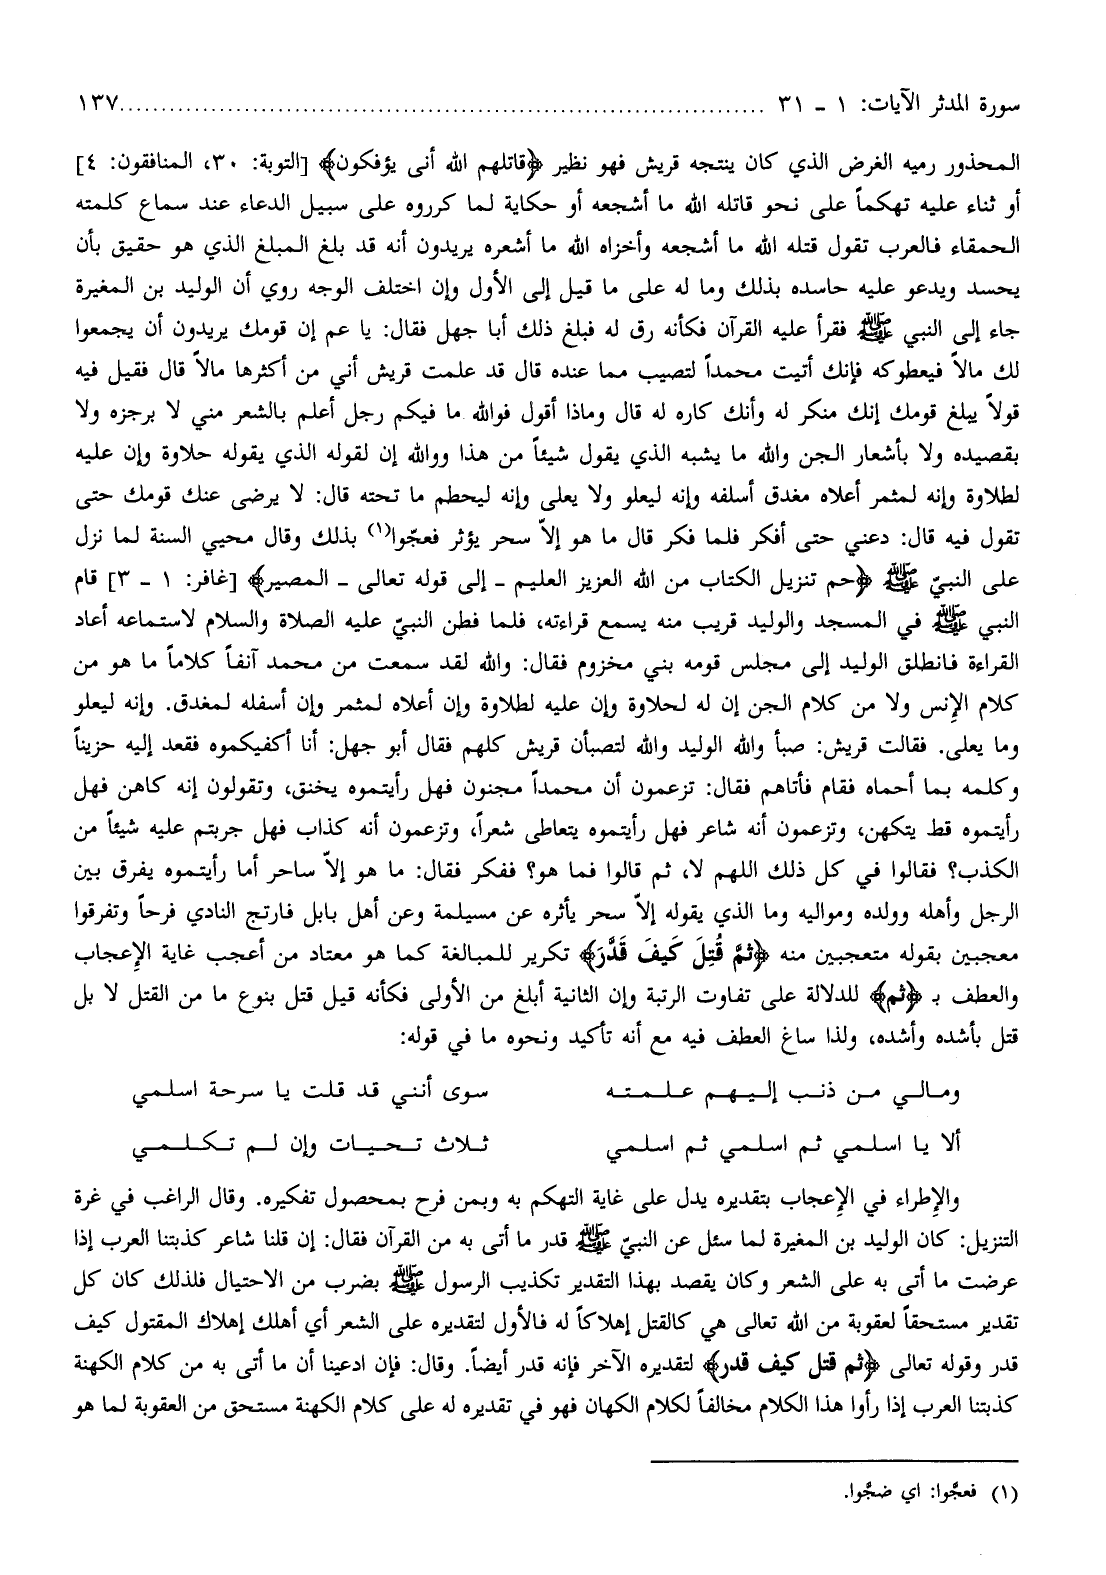 سورة المدثر الآيات: ١ ـ ٣١ ........................................................................... ١٣٧
المحذور رميه الغرض الذي كان ينتجه قريش فهو نظير ﴿قاتلهم الله أنى يؤفكون﴾ [التوبة: ٣٠، المنافقون: ٤]
أو ثناء عليه تهكماً على نحو قاتله الله ما أشجعه أو حكاية لما كرروه على سبيل الدعاء عند سماع كلمته
الحمقاء فالعرب تقول قتله الله ما أشجعه وأخزاه الله ما أشعره يريدون أنه قد بلغ المبلغ الذي هو حقيق بأن
يحسد ويدعو عليه حاسده بذلك وما له على ما قيل إلى الأول وإن اختلف الوجه روي أن الوليد بن المغيرة
جاء إلى النبي ﷺ فقرأ عليه القرآن فكأنه رق له فبلغ ذلك أبا جهل فقال: يا عم إن قومك يريدون أن يجمعوا
لك مالاً فيعطوكه فإنك أتيت محمداً لتصيب مما عنده قال قد علمت قريش أني من أكثرها مالاً قال فقيل فيه
قولاً يبلغ قومك إنك منكر له وأنك كاره له قال وماذا أقول فوالله ما فيكم رجل أعلم بالشعر مني لا برجزه ولا
بقصيده ولا بأشعار الجن والله ما يشبه الذي يقول شيئاً من هذا ووالله إن لقوله الذي يقوله حلاوة وإن عليه
لطلاوة وإنه لمثمر أعلاه مغدق أسلفه وإنه ليعلو ولا يعلى وإنه ليحطم ما تحته قال: لا يرضى عنك قومك حتى
تقول فيه قال: دعني حتى أفكر فلما فكر قال ما هو إلاّ سحر يؤثر فعجّوا(١) بذلك وقال محيي السنة لما نزل
على النبيّ ﷺ ﴿حم تنزيل الكتاب من الله العزيز العليم ـ إلى قوله تعالى ـ المصير﴾ [غافر: ١ ـ ٣] قام
النبي ﷺ في المسجد والوليد قريب منه يسمع قراءته، فلما فطن النبيّ عليه الصلاة والسلام لاستماعه أعاد
القراءة فانطلق الوليد إلى مجلس قومه بني مخزوم فقال: والله لقد سمعت من محمد آنفاً كلاماً ما هو من
كلام الإنس ولا من كلام الجن إن له لحلاوة وإن عليه لطلاوة وإن أعلاه لمثمر وإن أسفله لمغدق. وإنه ليعلو
وما يعلى. فقالت قريش: صبأ والله الوليد والله لتصبأن قريش كلهم فقال أبو جهل: أنا أكفيكموه فقعد إليه حزيناً
وكلمه بما أحماه فقام فأتاهم فقال: تزعمون أن محمداً مجنون فهل رأيتموه يخنق، وتقولون إنه كاهن فهل
رأيتموه قط يتكهن، وتزعمون أنه شاعر فهل رأيتموه يتعاطى شعراً، وتزعمون أنه كذاب فهل جربتم عليه شيئاً من
الكذب؟ فقالوا في كل ذلك اللهم لا، ثم قالوا فما هو؟ ففكر فقال: ما هو إلاّ ساحر أما رأيتموه يفرق بين
الرجل وأهله وولده ومواليه وما الذي يقوله إلاّ سحر يأثره عن مسيلمة وعن أهل بابل فارتج النادي فرحاً وتفرقوا
معجبين بقوله متعجبين منه ﴿ثُمَّ قُتِلَ كَيفَ قَدَّرَ﴾ تكرير للمبالغة كما هو معتاد من أعجب غاية الإعجاب
والعطف بـ ﴿ثم﴾ للدلالة على تفاوت الرتبة وإن الثانية أبلغ من الأولى فكأنه قيل قتل بنوع ما من القتل لا بل
قتل بأشده وأشده، ولذا ساغ العطف فيه مع أنه تأكيد ونحوه ما في قوله:
ومالي من ذنب إليهم علمته سوى أنني قد قلت يا سرحة اسلمي
ألا يا اسلمي ثم اسلمي ثم اسلمي ثلاث تحيات وإن لم تكلمي
والإطراء في الإعجاب بتقديره يدل على غاية التهكم به وبمن فرح بمحصول تفكيره. وقال الراغب في غرة
التنزيل: كان الوليد بن المغيرة لما سئل عن النبيّ ﷺ قدر ما أتى به من القرآن فقال: إن قلنا شاعر كذبتنا العرب إذا
عرضت ما أتى به على الشعر وكان يقصد بهذا التقدير تكذيب الرسول ﷺ بضرب من الاحتيال فلذلك كان كل
تقدير مستحقاً لعقوبة من الله تعالى هي كالقتل إهلاكاً له فالأول لتقديره على الشعر أي أهلك إهلاك المقتول كيف
قدر وقوله تعالى ﴿ثم قتل كيف قدر﴾ لتقديره الآخر فإنه قدر أيضاً. وقال: فإن ادعينا أن ما أتى به من كلام الكهنة
كذبتنا العرب إذا رأوا هذا الكلام مخالفاً لكلام الكهان فهو في تقديره له على كلام الكهنة مستحق من العقوبة لما هو
(١) فعجّوا: اي ضجّوا.